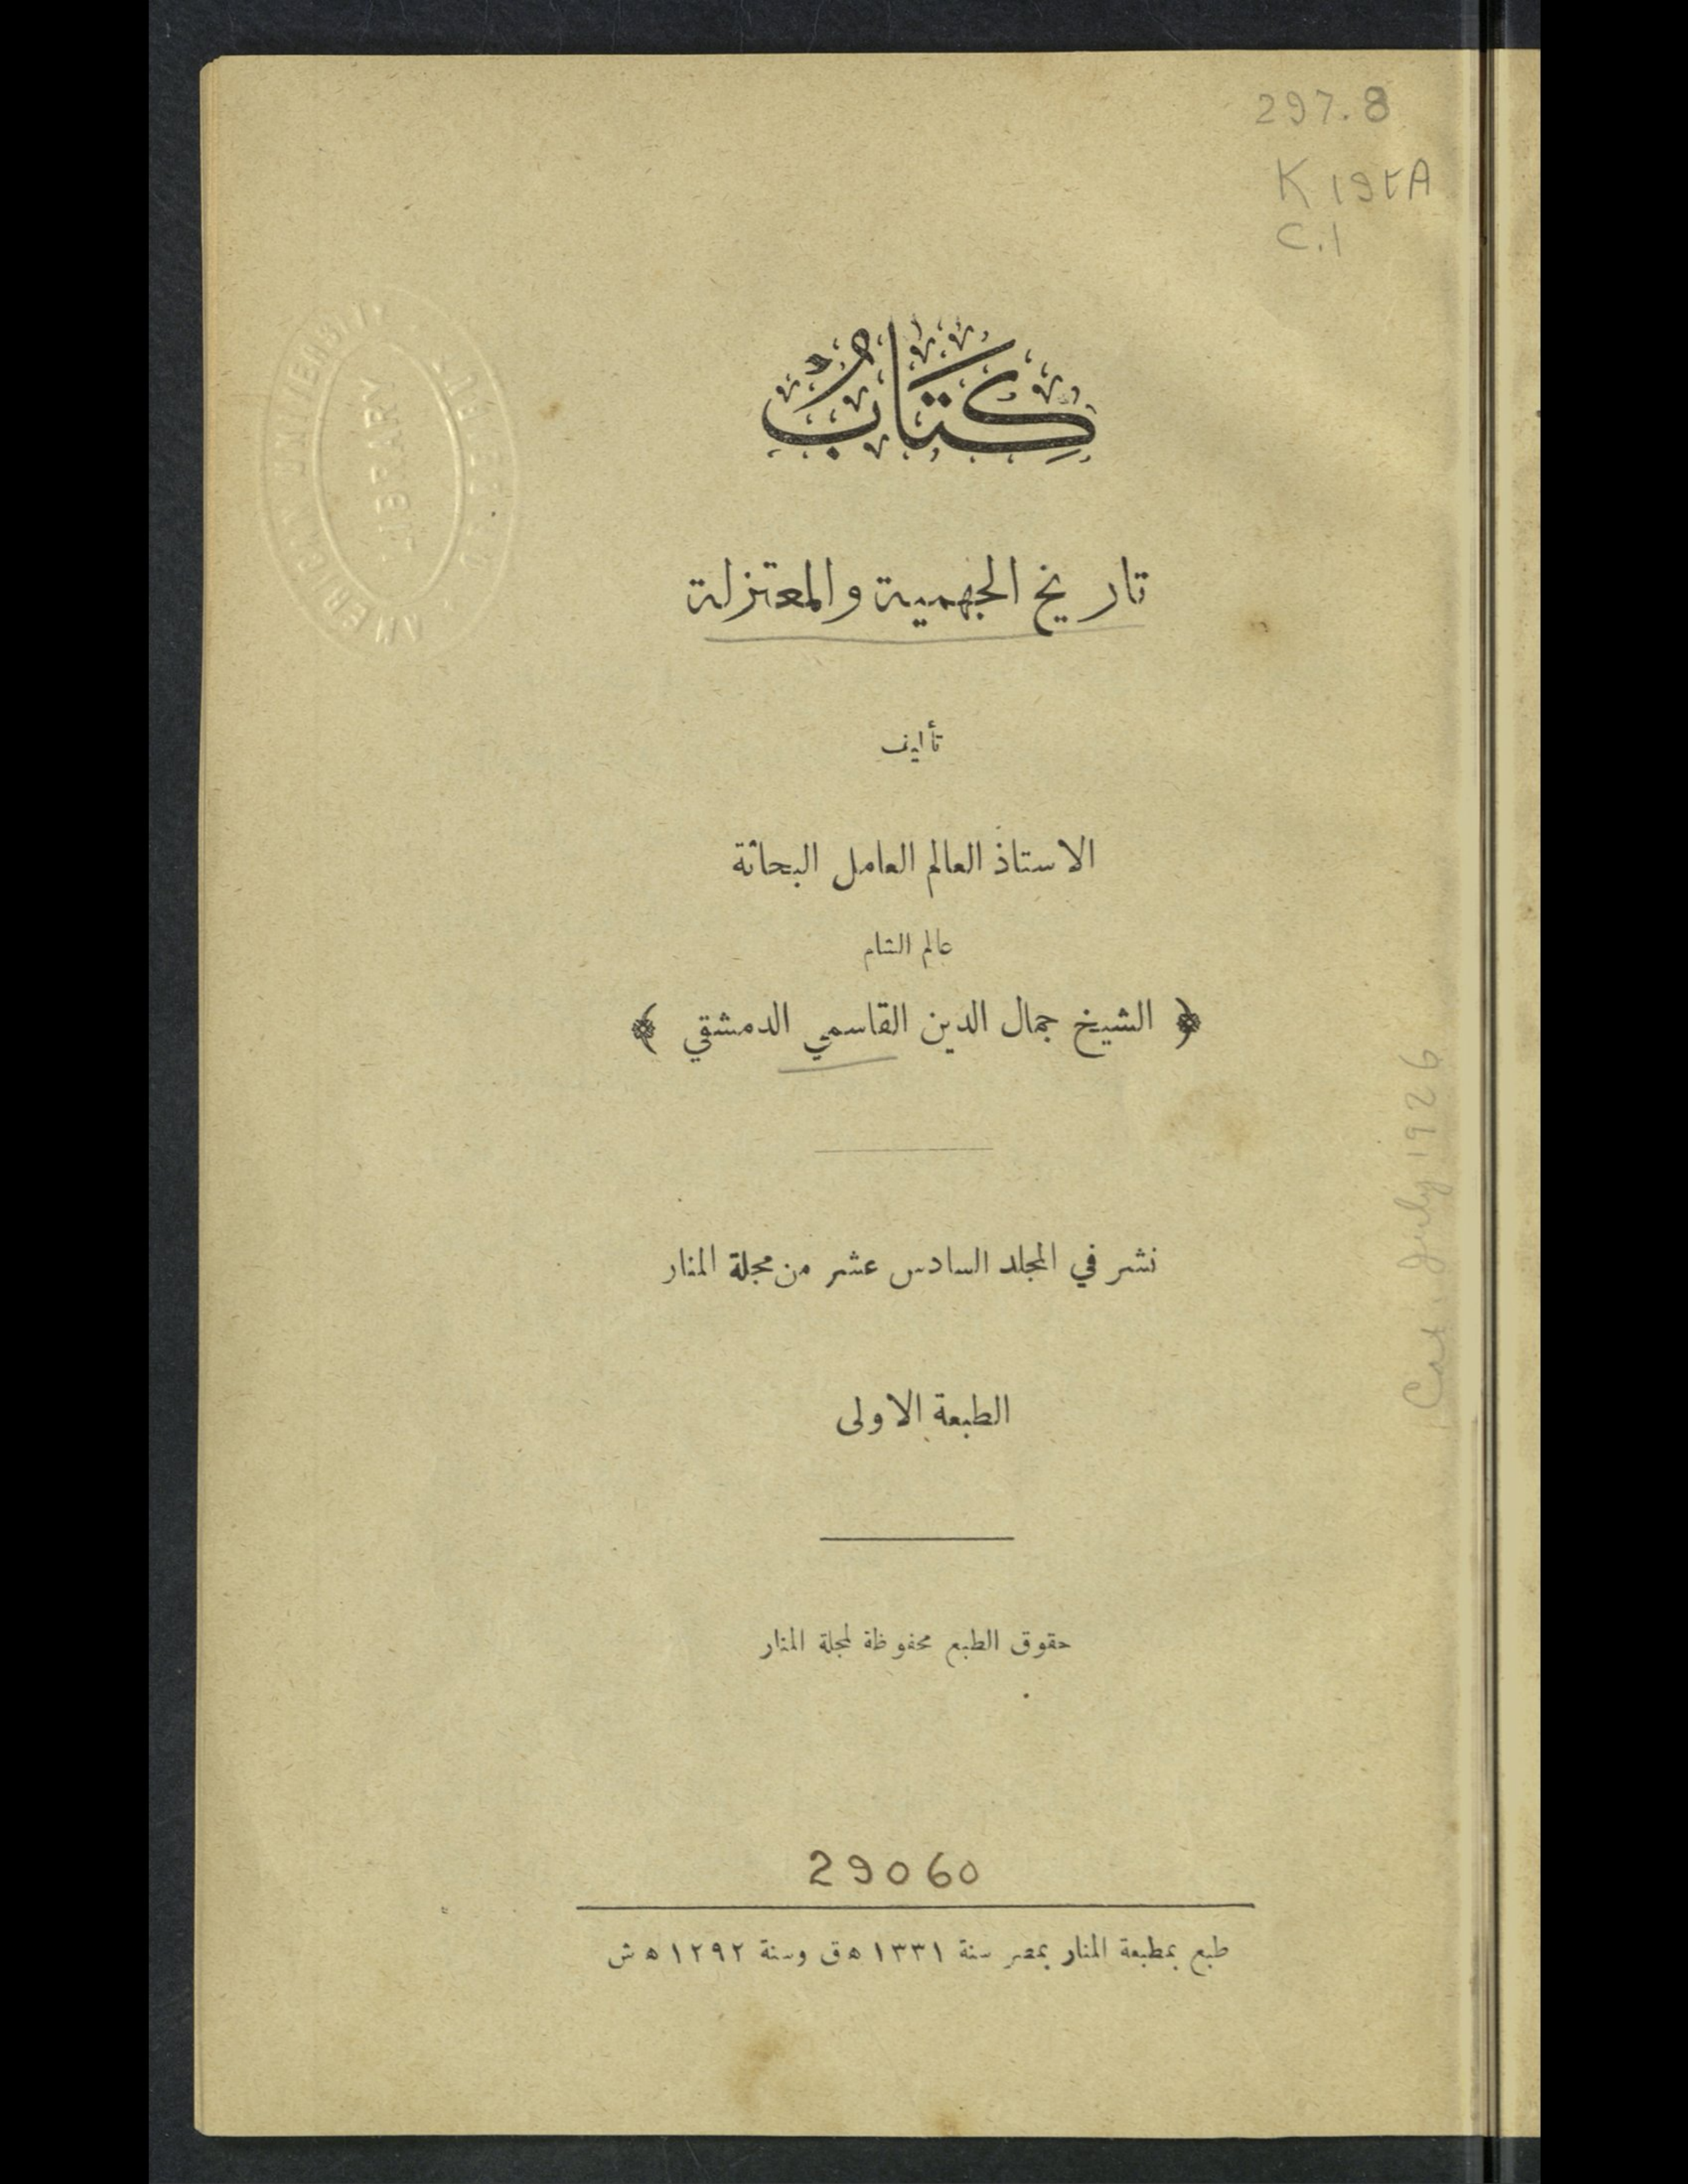 297.8
K19tA
C.1
كِتَابُ
تاريخ الجهمية والمعتزلة
تأليف
الاستاذ العالم العامل البحاثة
عالم الشام
﴿ الشيخ جمال الدين القاسمي الدمشقي ﴾
نشر في المجلد السادس عشر من مجلة المنار
الطبعة الاولى
حقوق الطبع محفوظة لمجلة المنار
29060
طبع بمطبعة المنار بمصر سنة ١٣٣١ ه‍ ق وسنة ١٢٩٢ ه‍ ش
AMERICAN UNIVERSITY
LIBRARY
Cat. July 1926